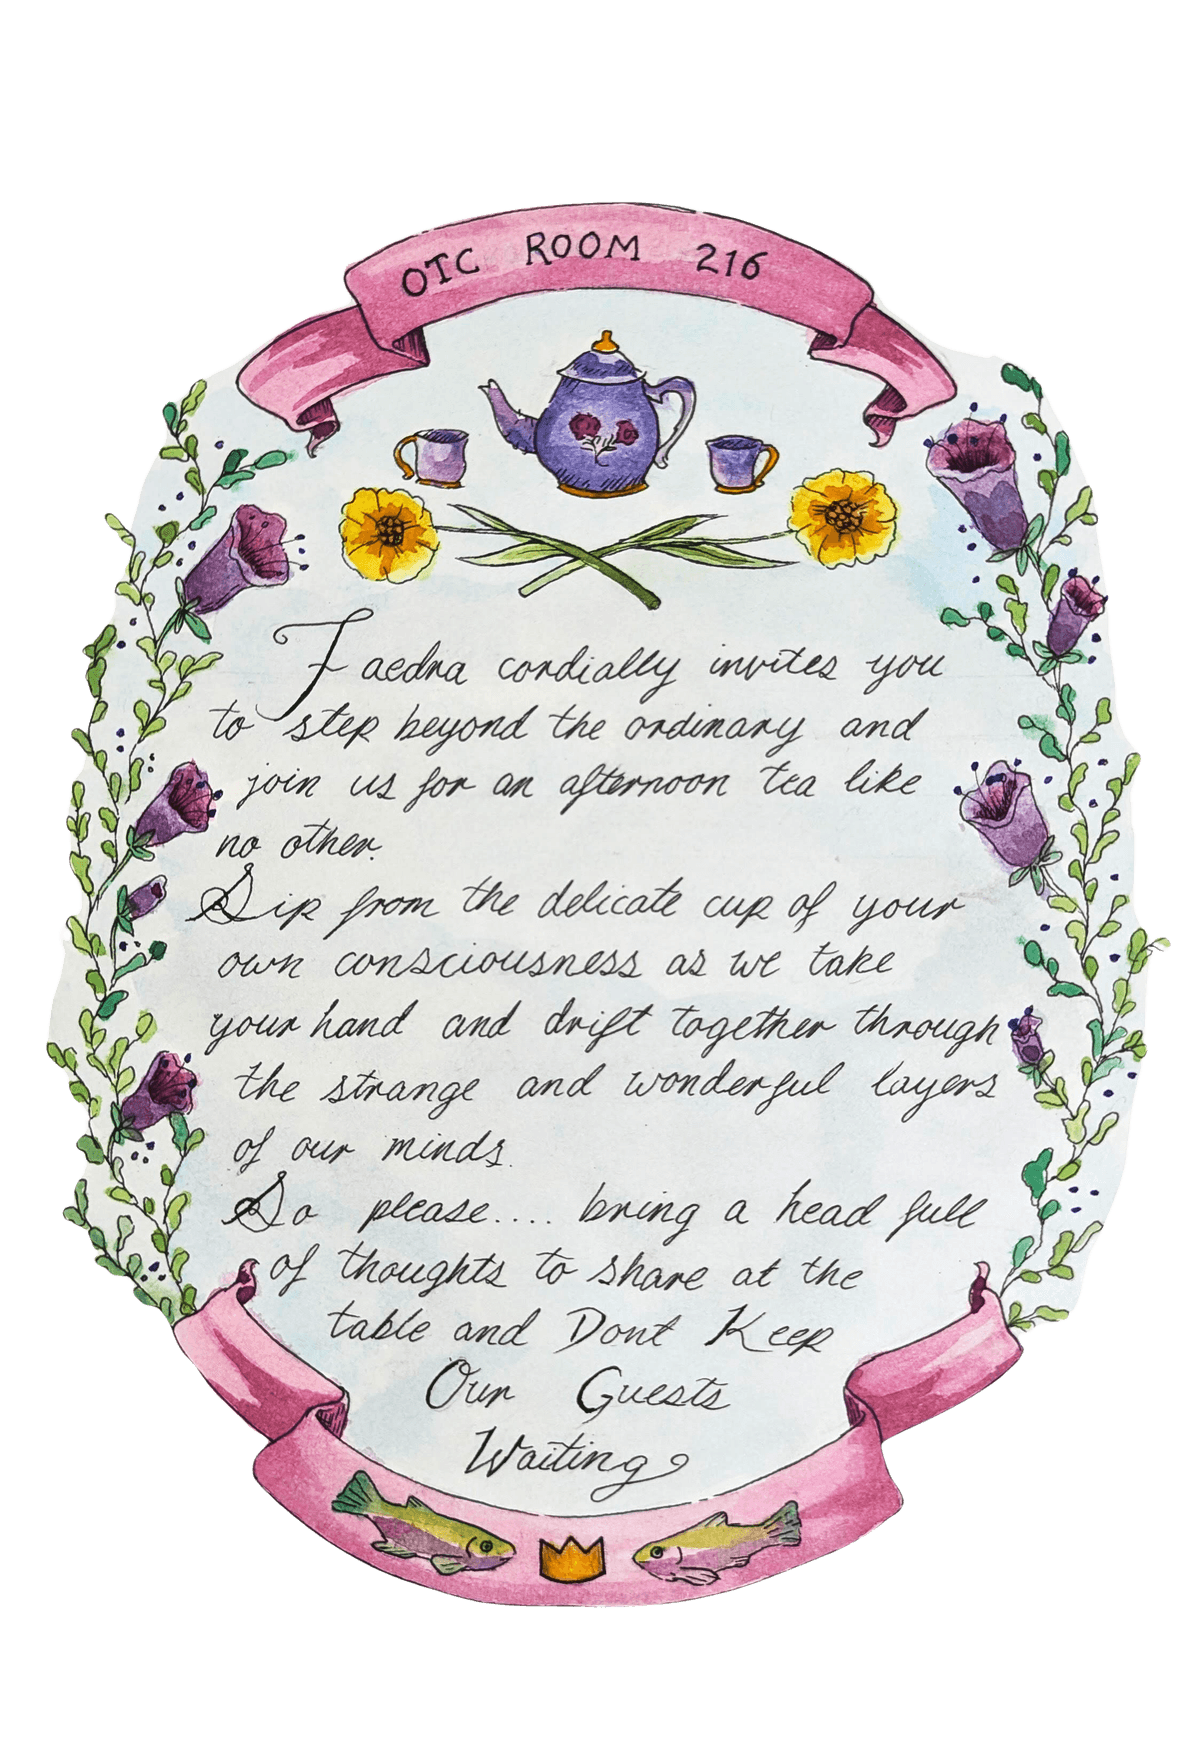 OTC ROOM 216
Faedra cordially invites you
to step beyond the ordinary and
join us for an afternoon tea like
no other.
Sip from the delicate cup of your
own consciousness as we take
your hand and drift together through
the strange and wonderful layers
of our minds.
So please.... bring a head full
of thoughts to share at the
table and Dont Keep
Our Guests
Waiting